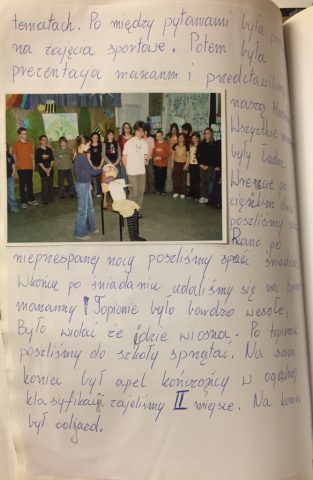 tematach. Po między pytaniami była
na zajęcia sportowe. Potem była
prezentacja marzann i przedstawienie
naszej
Wszystkie
były ładne.
Wreszcie po
ciężkim dniu
poszliśmy
Rano po
nieprzespanej nocy poszliśmy zjeść śniadanie
Wkońcu po śniadaniu udaliśmy się na topienie
marzanny! Topienie było bardzo wesołe,
Było widać że idzie wiosna. Po topieniu
poszliśmy do szkoły sprzątać. Na sam
koniec był apel kończący w ogólnej
klasyfikacji zajeliśmy II miejsce. Na koniec
był odjazd.